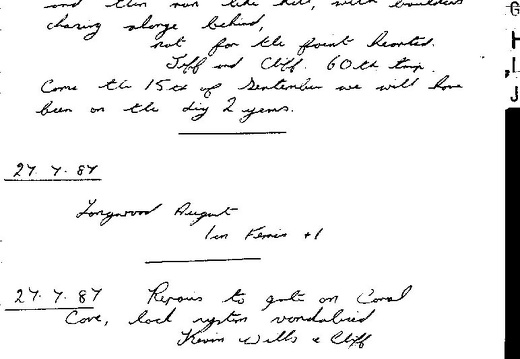 and then run like hell, with boulders
chasing alonge behind,
not for the faint hearted.
Jeff and Cliff. 60th trip.
Come the 15th of September we will have
been on the dig 2 years.
27. 7. 87
Longwood August
Ian Ferris +1
27. 7. 87 Repairs to gate on Coral
Cave, lock system vandalised
Kevin Wills & Cliff
G
H
J